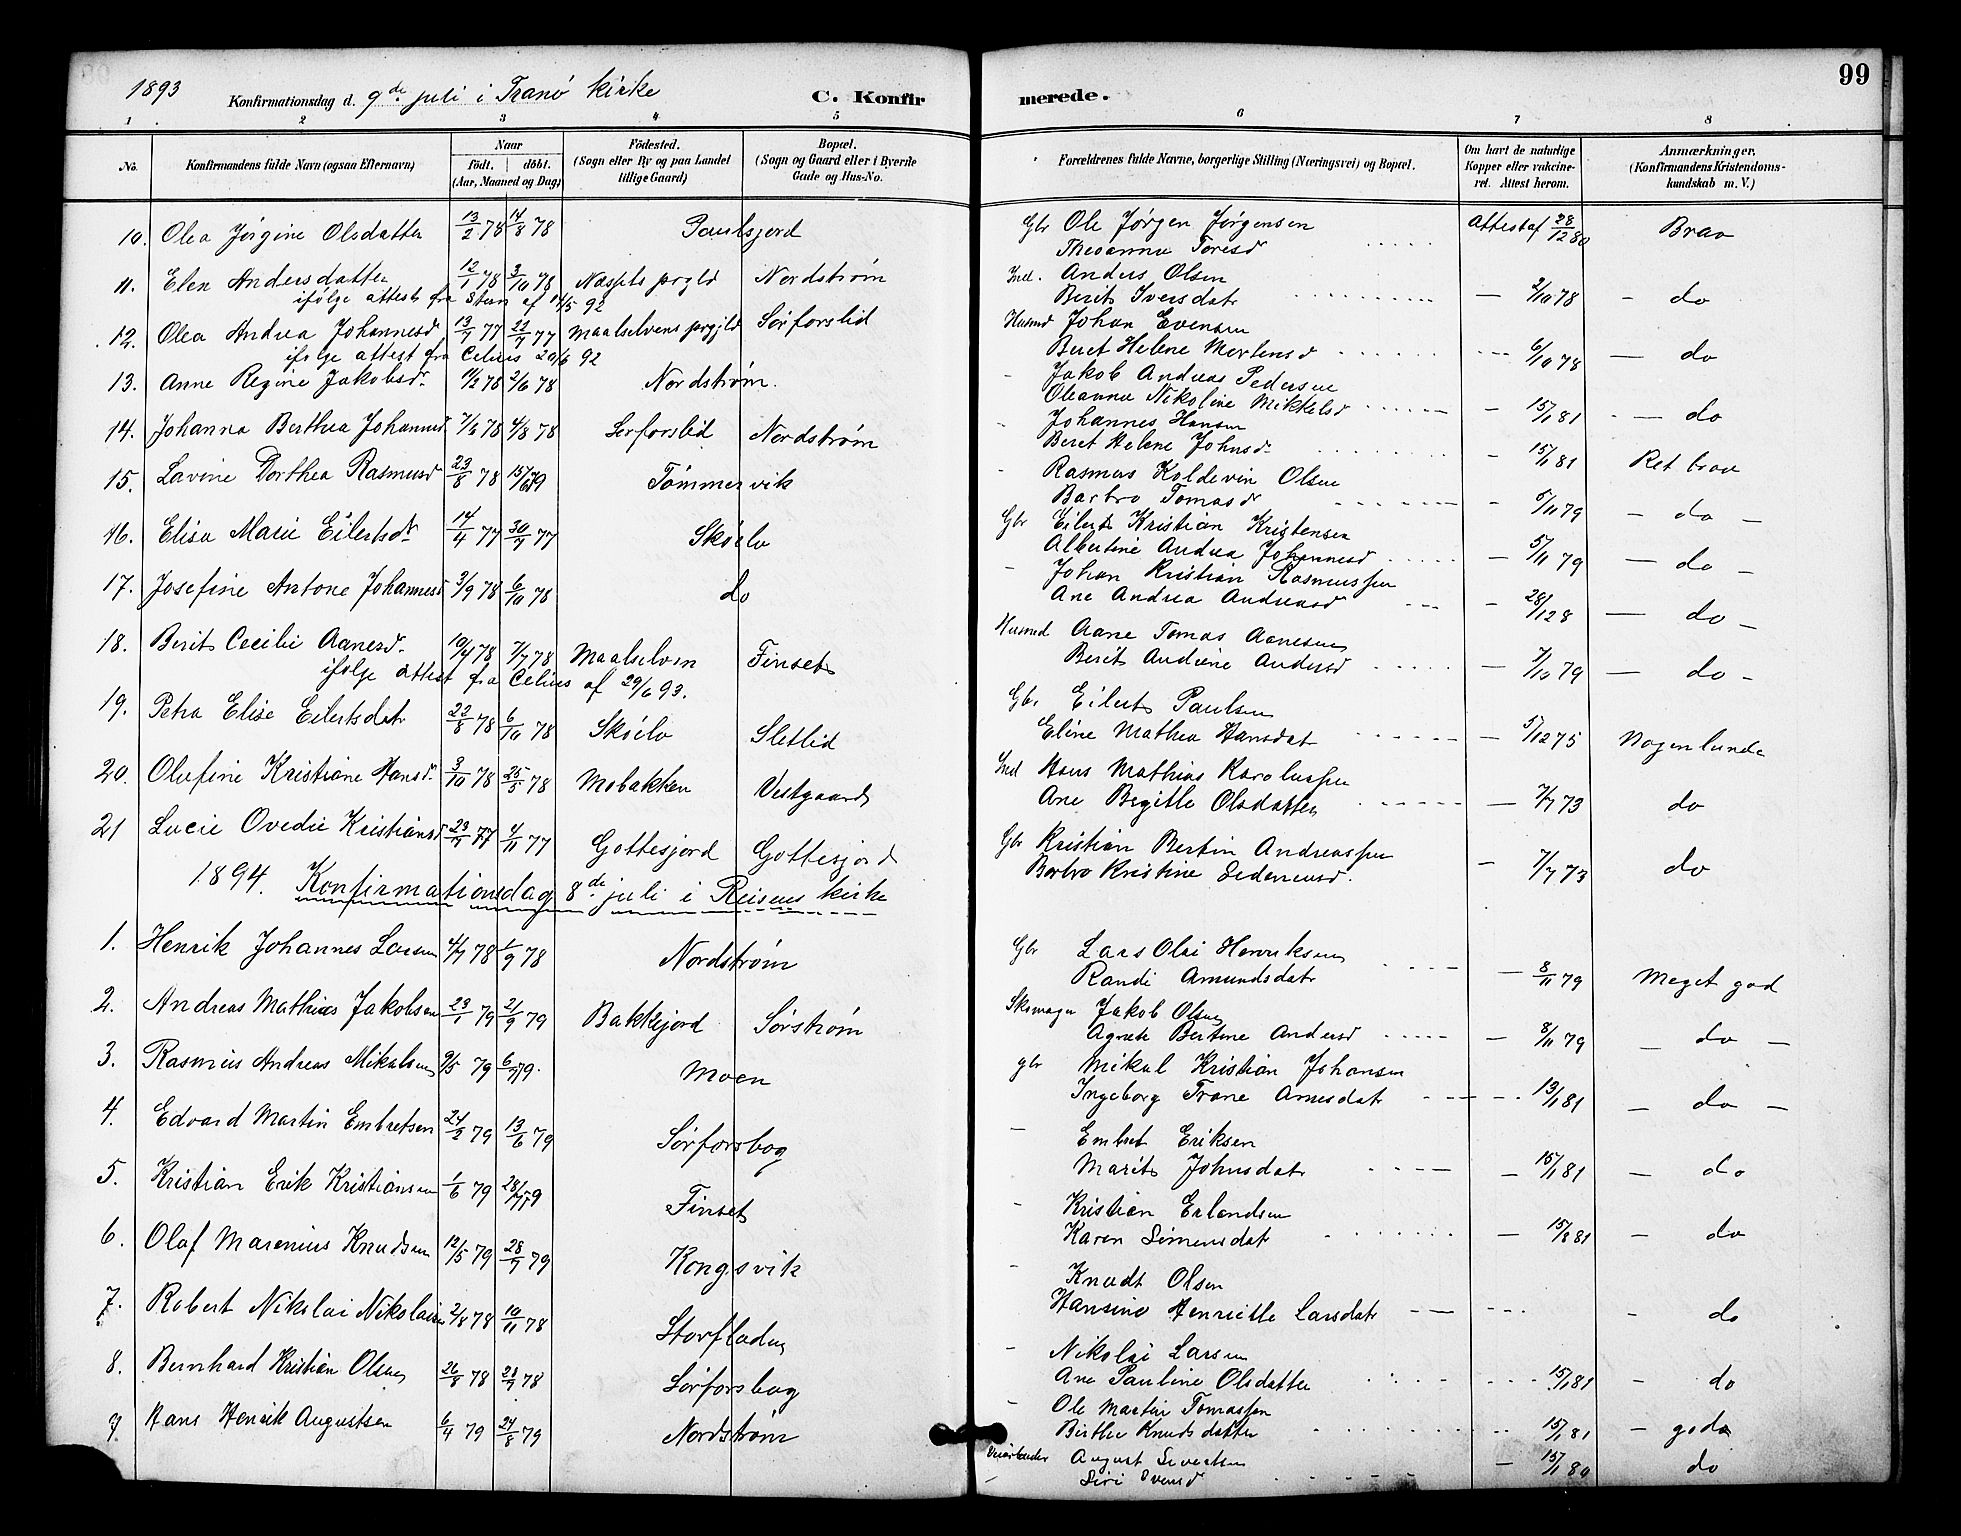 1893 Konfirmationsdag d. 9de juli i Tranø kirke C. Konfirmerede. 99
1 2 3 4 5 6 7 8
No. Konfirmandens fulde Navn (ogsaa Efternavn) Naar født. døbt. (Aar, Maaned og Dag) Fødested. (Sogn eller By og paa Landet tillige Gaard) Bopæl. (Sogn og Gaard eller i Byerne Gade og Hus-No. Forældrenes fulde Navne, borgerlige Stilling (Næringsvei) og Bopæl. Om havt de naturlige Kopper eller vakcineret. Attest herom. Anmærkninger. (Konfirmandens Kristendomskundskab m. V.)
10. Olea Jørgine Olsdatter 13/2 78 14/8 78 Paulsjord Gbr Ole Jørgen Jørgensen Attest af 28/12 80 Brav
Theoanna Toresd
11. Elen Andersdatter 12/1 78 3/10 78 Nordstrøm Ind. Anders Olsen
ifølge attest fra Steen af 14/5 92 Berit Iversdatr — 2/10 78 - do
12. Olea Andrea Johannesd 13/7 77 22/7 77 Maalselvens prgjld Sørforslid Husmd Johan Evensen
ifølge attest fra Celius 20/6 92 Beret Helene Mortensd 6/10 78 — do
13. Anne Regine Jakobsdr 11/2 78 2/6 78 Nordstrøm. - Jakob Andreas Pedersen
Oleanna Nikoline Mikkelsd - 15/1 81 — do
14. Johanna Berthea Johannesd 7/6 78 4/8 78 Sørforslid Nordstrøm - Johannes Hansen
Beret Helene Johnsd - 15/1 81 Ret brav
15. Lavine Dorthea Rasmusd 23/8 78 15/6 79 Tømmervik - Rasmus Koldevin Olsen
Barbro Tomasd - 5/11 79 - do -
16. Elisa Marie Eilertsdr 14/4 77 30/7 77 Skøelv Gbr Eilert Kristian Kristensen
Albertine Andrea Johannesd — 5/11 79 — do -
17. Josefine Antone Johannesd 3/9 78 6/10 78 do - Johan Kristian Rasmussen
Ane Andrea Andreasd - 28/12 8 — do -
18. Berit Cecilie Aanesd. 10/4 78 7/7 78 Maalselven Finset Husmd Aane Tomas Aanesen
ifølge attest fra Celius af 29/6 93. Berit Andrine Andersd — 7/10 79 — do -
19. Petra Elise Eilertsdatr 22/8 78 6/10 78 Skøelv Sletlid Gbr Eilert Paulsen
Eline Mathea Hansdat — 5/12 75 Nogenlunde
20. Olufine Kristiane Hansdr 3/10 78 25/5 78 Mobakken Vestgaard Ind Hans Mathias Karolussen
Ane Birgitte Olsdatter — 7/7 73 do
21 Lucie Ovedie Kristiansd 23/9 77 4/11 77 Gottesjord Gottesjord Gbr Kristian Bertin Andreassen
Barbro Kristine — 7/7 73 do
1894. Konfirmationsdag 8de juli i Reisens kirke
1. Henrik Johannes Larsen 4/7 78 1/9 78 Nordstrøm Gbr Lars Olai Henriksen
Randi Amundsdatr — 8/11 79 Meget god
2. Andreas Mathias Jakobsen 23/1 79 21/9 79 Bakkejord Sørstrøm Skomager Jakob Olsen
Agnete Bertine Andersd — 8/11 79 — do —
3. Rasmus Andreas Mikalsen 9/5 79 6/7 79. Moen gbr Mikal Kristian Johansen
Ingeborg Trane Arnesdatr 13/1 81 — do —
4. Edvard Martin Embretsen 24/2 79 13/6 79 Sørforsbog - Embret Eriksen
Marit Johnsdatr — 15/1 81 — do
5. Kristian Erik Kristiansen 1/6 79 28/7 79 Finset - Kristian Erlandsen
Karen Simensdat — 15/8 81 - do
6. Olaf Marenius Knudsen 12/5 79 28/9 79 Kongsvik - Knudt Olsen
Hansine Henriette Larsdatr - do
7. Robert Nikolai Nikolaisen 2/8 78 10/11 78 Storfladen - Nikolai Larsen
Ane Pauline Olsdatter 15/1 81 - do
8. Bernhard Kristian Olsen 26/8 78 29/9 78 Sørforsbog - Ole Martin Tomassen
Birthe Knudsdatter 15/1 81 - goda
9. Hans Henrik Augustsen 6/4 79 24/8 79 Nordstrøm August Sivertsen - 15/1 80 do
Siri Svensd